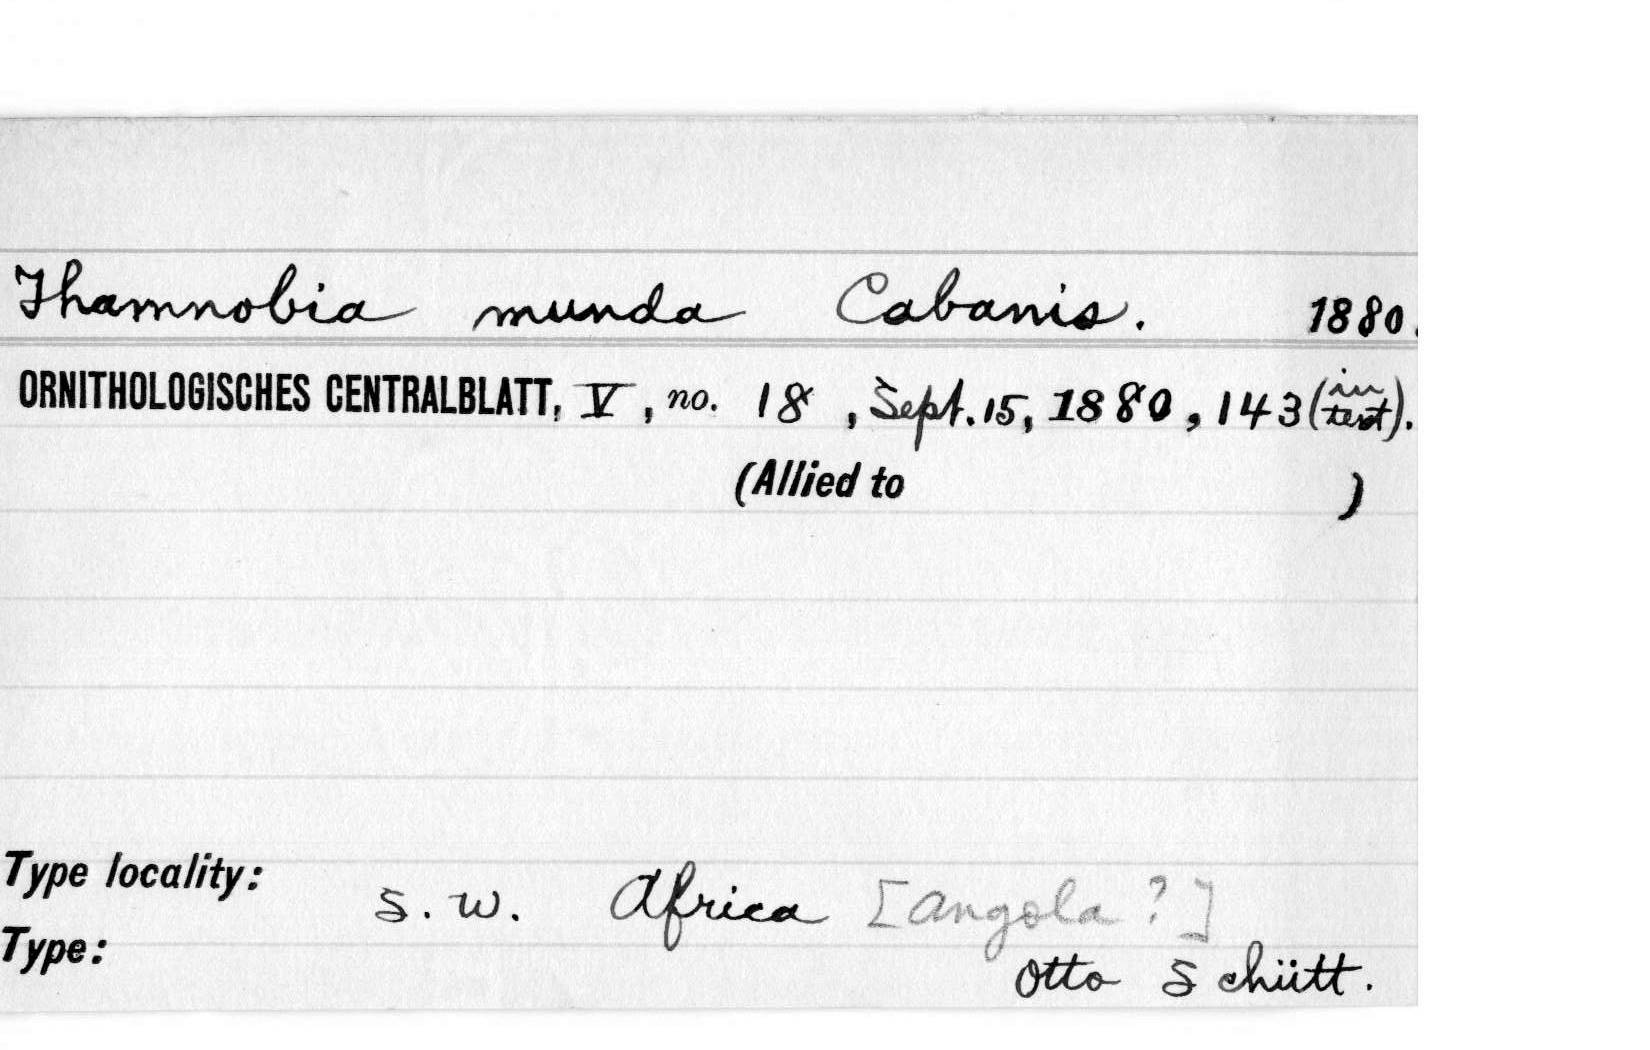 Thamnobia munda Cabanis. 1880.
ORNITHOLOGISCHES CENTRALBLATT, V, no. 18, Sept. 15, 1880, 143 (in text).
(Allied to )
Type locality: S. W. Africa [Angola ?]
Type: Otto Schütt.